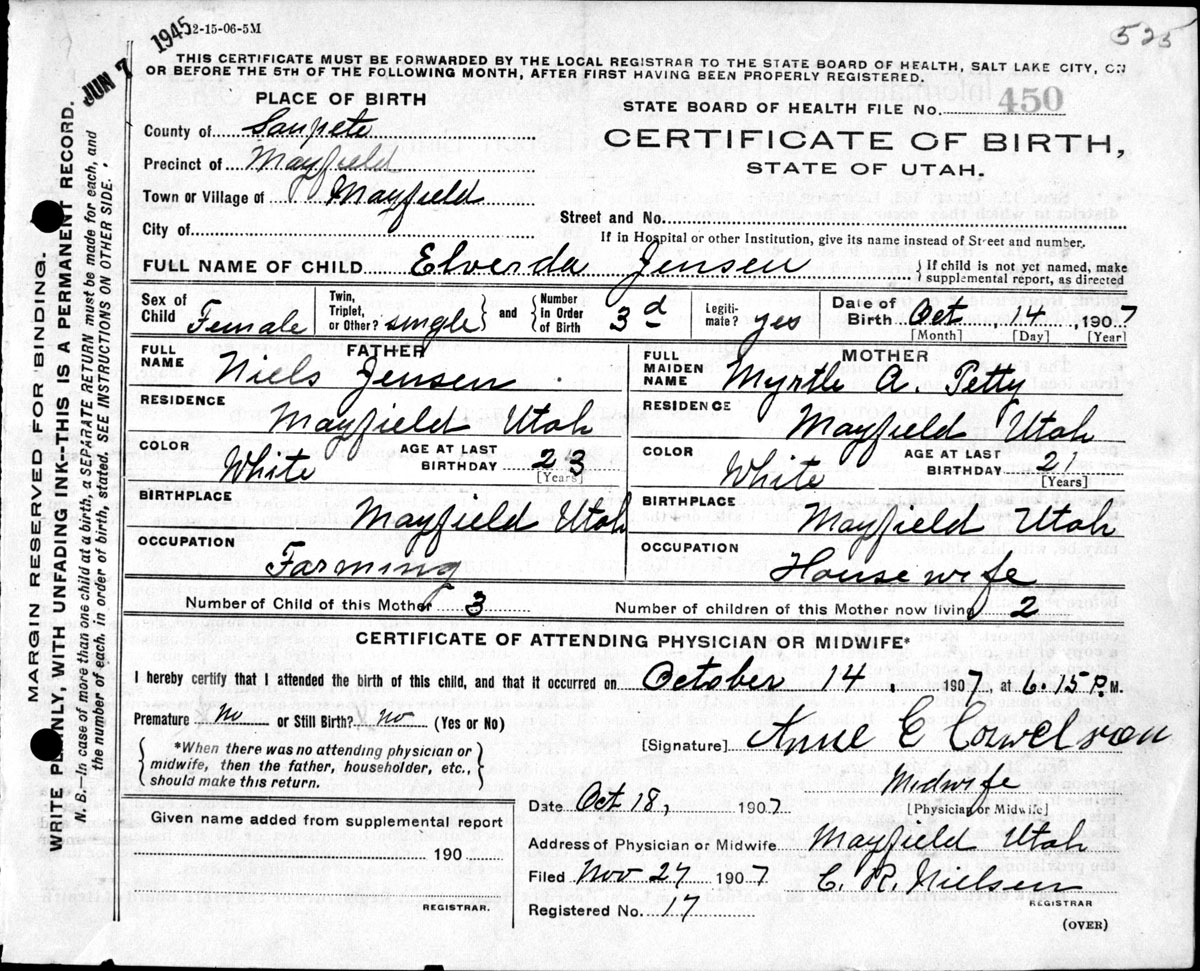 1945 2-15-06-5M
525
JUN 7
THIS CERTIFICATE MUST BE FORWARDED BY THE LOCAL REGISTRAR TO THE STATE BOARD OF HEALTH, SALT LAKE CITY, ON
OR BEFORE THE 5TH OF THE FOLLOWING MONTH, AFTER FIRST HAVING BEEN PROPERLY REGISTERED.
PLACE OF BIRTH
STATE BOARD OF HEALTH FILE No. 450
County of Sanpete
CERTIFICATE OF BIRTH,
Precinct of Mayfield
STATE OF UTAH.
Town or Village of Mayfield
Street and No.
City of
If in Hospital or other Institution, give its name instead of Street and number.
FULL NAME OF CHILD Elverda Jensen } If child is not yet named, make supplemental report, as directed
Sex of Child Female Twin, Triplet, or Other? single } and { Number in Order of Birth 3d Legitimate? yes Date of Birth Oct, 14, 1907
[Month] [Day] [Year]
FATHER MOTHER
FULL NAME Niels Jensen FULL MAIDEN NAME Myrtle A. Petty
RESIDENCE Mayfield Utah RESIDENCE Mayfield Utah
COLOR White AGE AT LAST BIRTHDAY 23 [Years] COLOR White AGE AT LAST BIRTHDAY 21 [Years]
BIRTHPLACE Mayfield Utah BIRTHPLACE Mayfield Utah
OCCUPATION Farming OCCUPATION Housewife
Number of Child of this Mother 3 Number of children of this Mother now living 2
CERTIFICATE OF ATTENDING PHYSICIAN OR MIDWIFE*
I hereby certify that I attended the birth of this child, and that it occurred on October 14, 1907, at 6.15 P. M.
Premature No or Still Birth? no (Yes or No)
*When there was no attending physician or
midwife, then the father, householder, etc.,
should make this return.
[Signature] Anne C
Midwife
Date Oct 18, 1907 [Physician or Midwife]
Given name added from supplemental report
190
REGISTRAR.
Address of Physician or Midwife Mayfield Utah
Filed Nov 27 1907 C. R. Nielsen
REGISTRAR
Registered No. 17
(OVER)
MARGIN RESERVED FOR BINDING.
WRITE PLAINLY, WITH UNFADING INK--THIS IS A PERMANENT RECORD.
N. B.--In case of more than one child at a birth, a SEPARATE RETURN must be made for each, and
the number of each, in order of birth, stated. SEE INSTRUCTIONS ON OTHER SIDE.